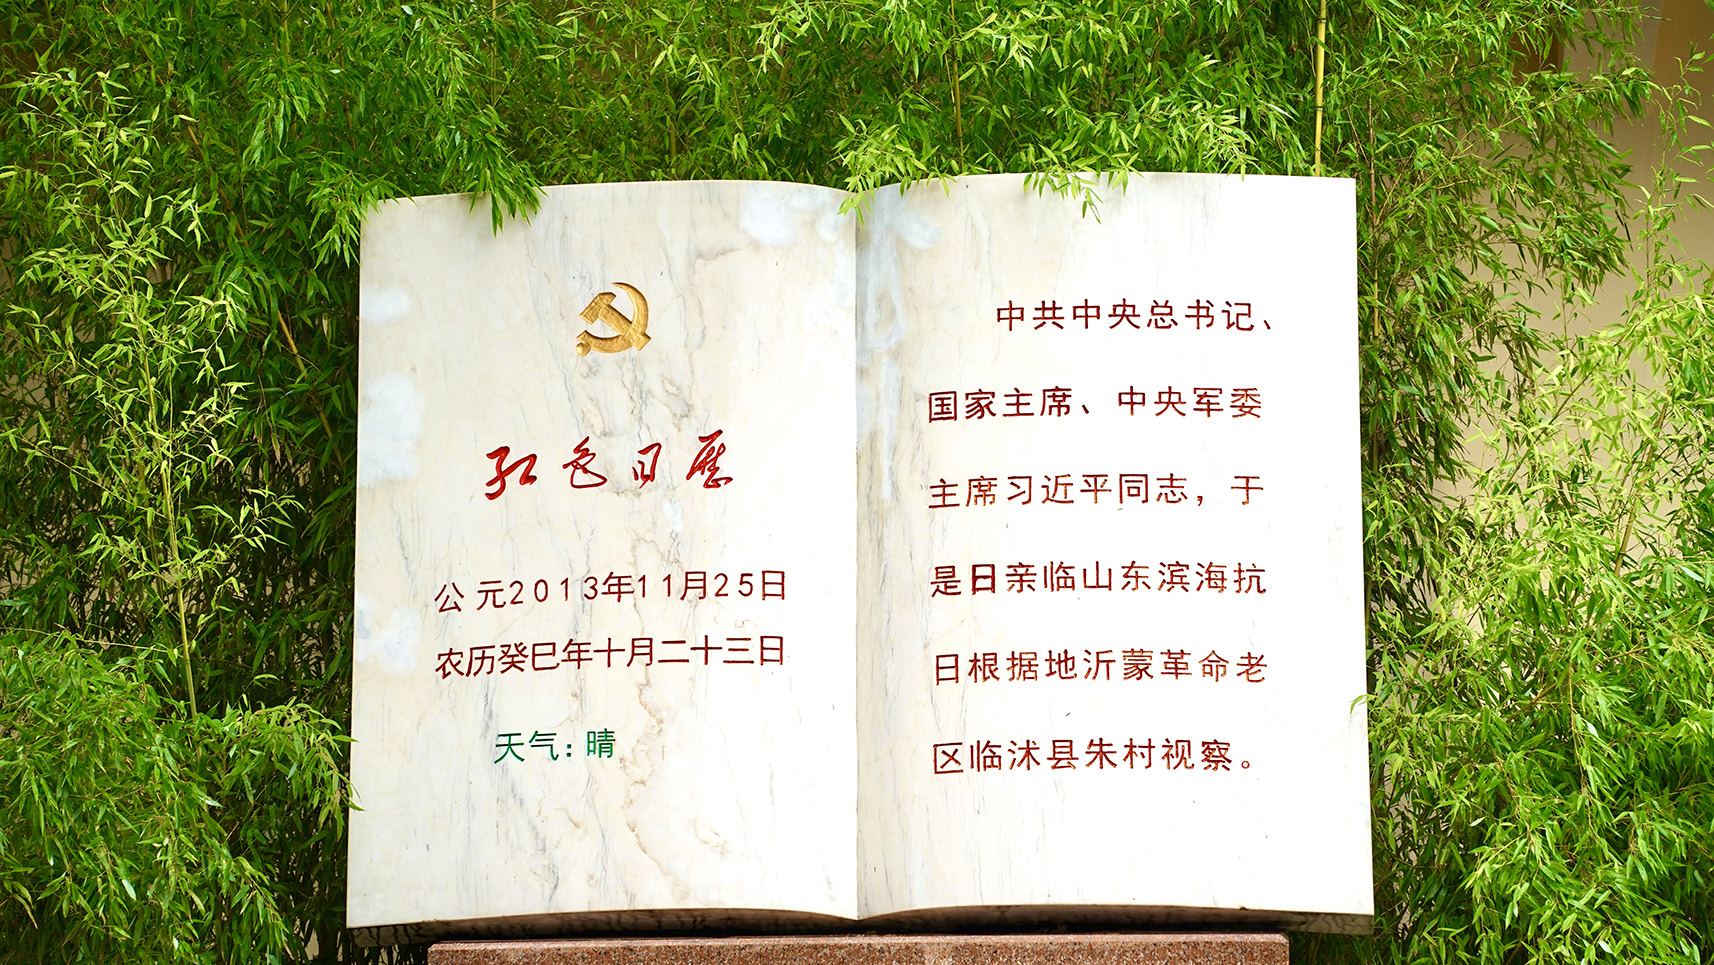 红色日历
公元2013年11月25日
农历癸巳年十月二十三日
天气：晴
中共中央总书记、
国家主席、中央军委
主席习近平同志，于
是日亲临山东滨海抗
日根据地沂蒙革命老
区临沭县朱村视察。